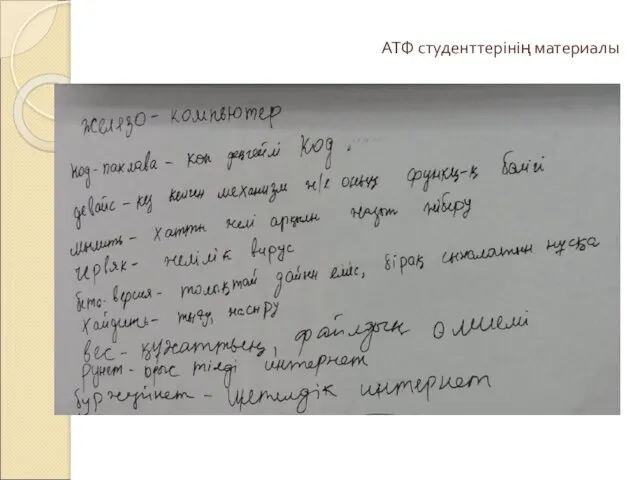 АТФ студенттерінің материалы
железо - компьютер
код-пахлава - көп деңгейлі код.
девайс - кез келген механизм н/е оның функц-қ бөлігі
мылить - хатты желі арқылы жіберу
червяк - желілік вирус
бета-версия - толықтай дайын емес, бірақ сыналатын нұсқа
хайдить - тығу, жасыру
вес - құжаттың, файлдың өлшемі
рунет - орыс тілді интернет
буржуйнет - шетелдік интернет